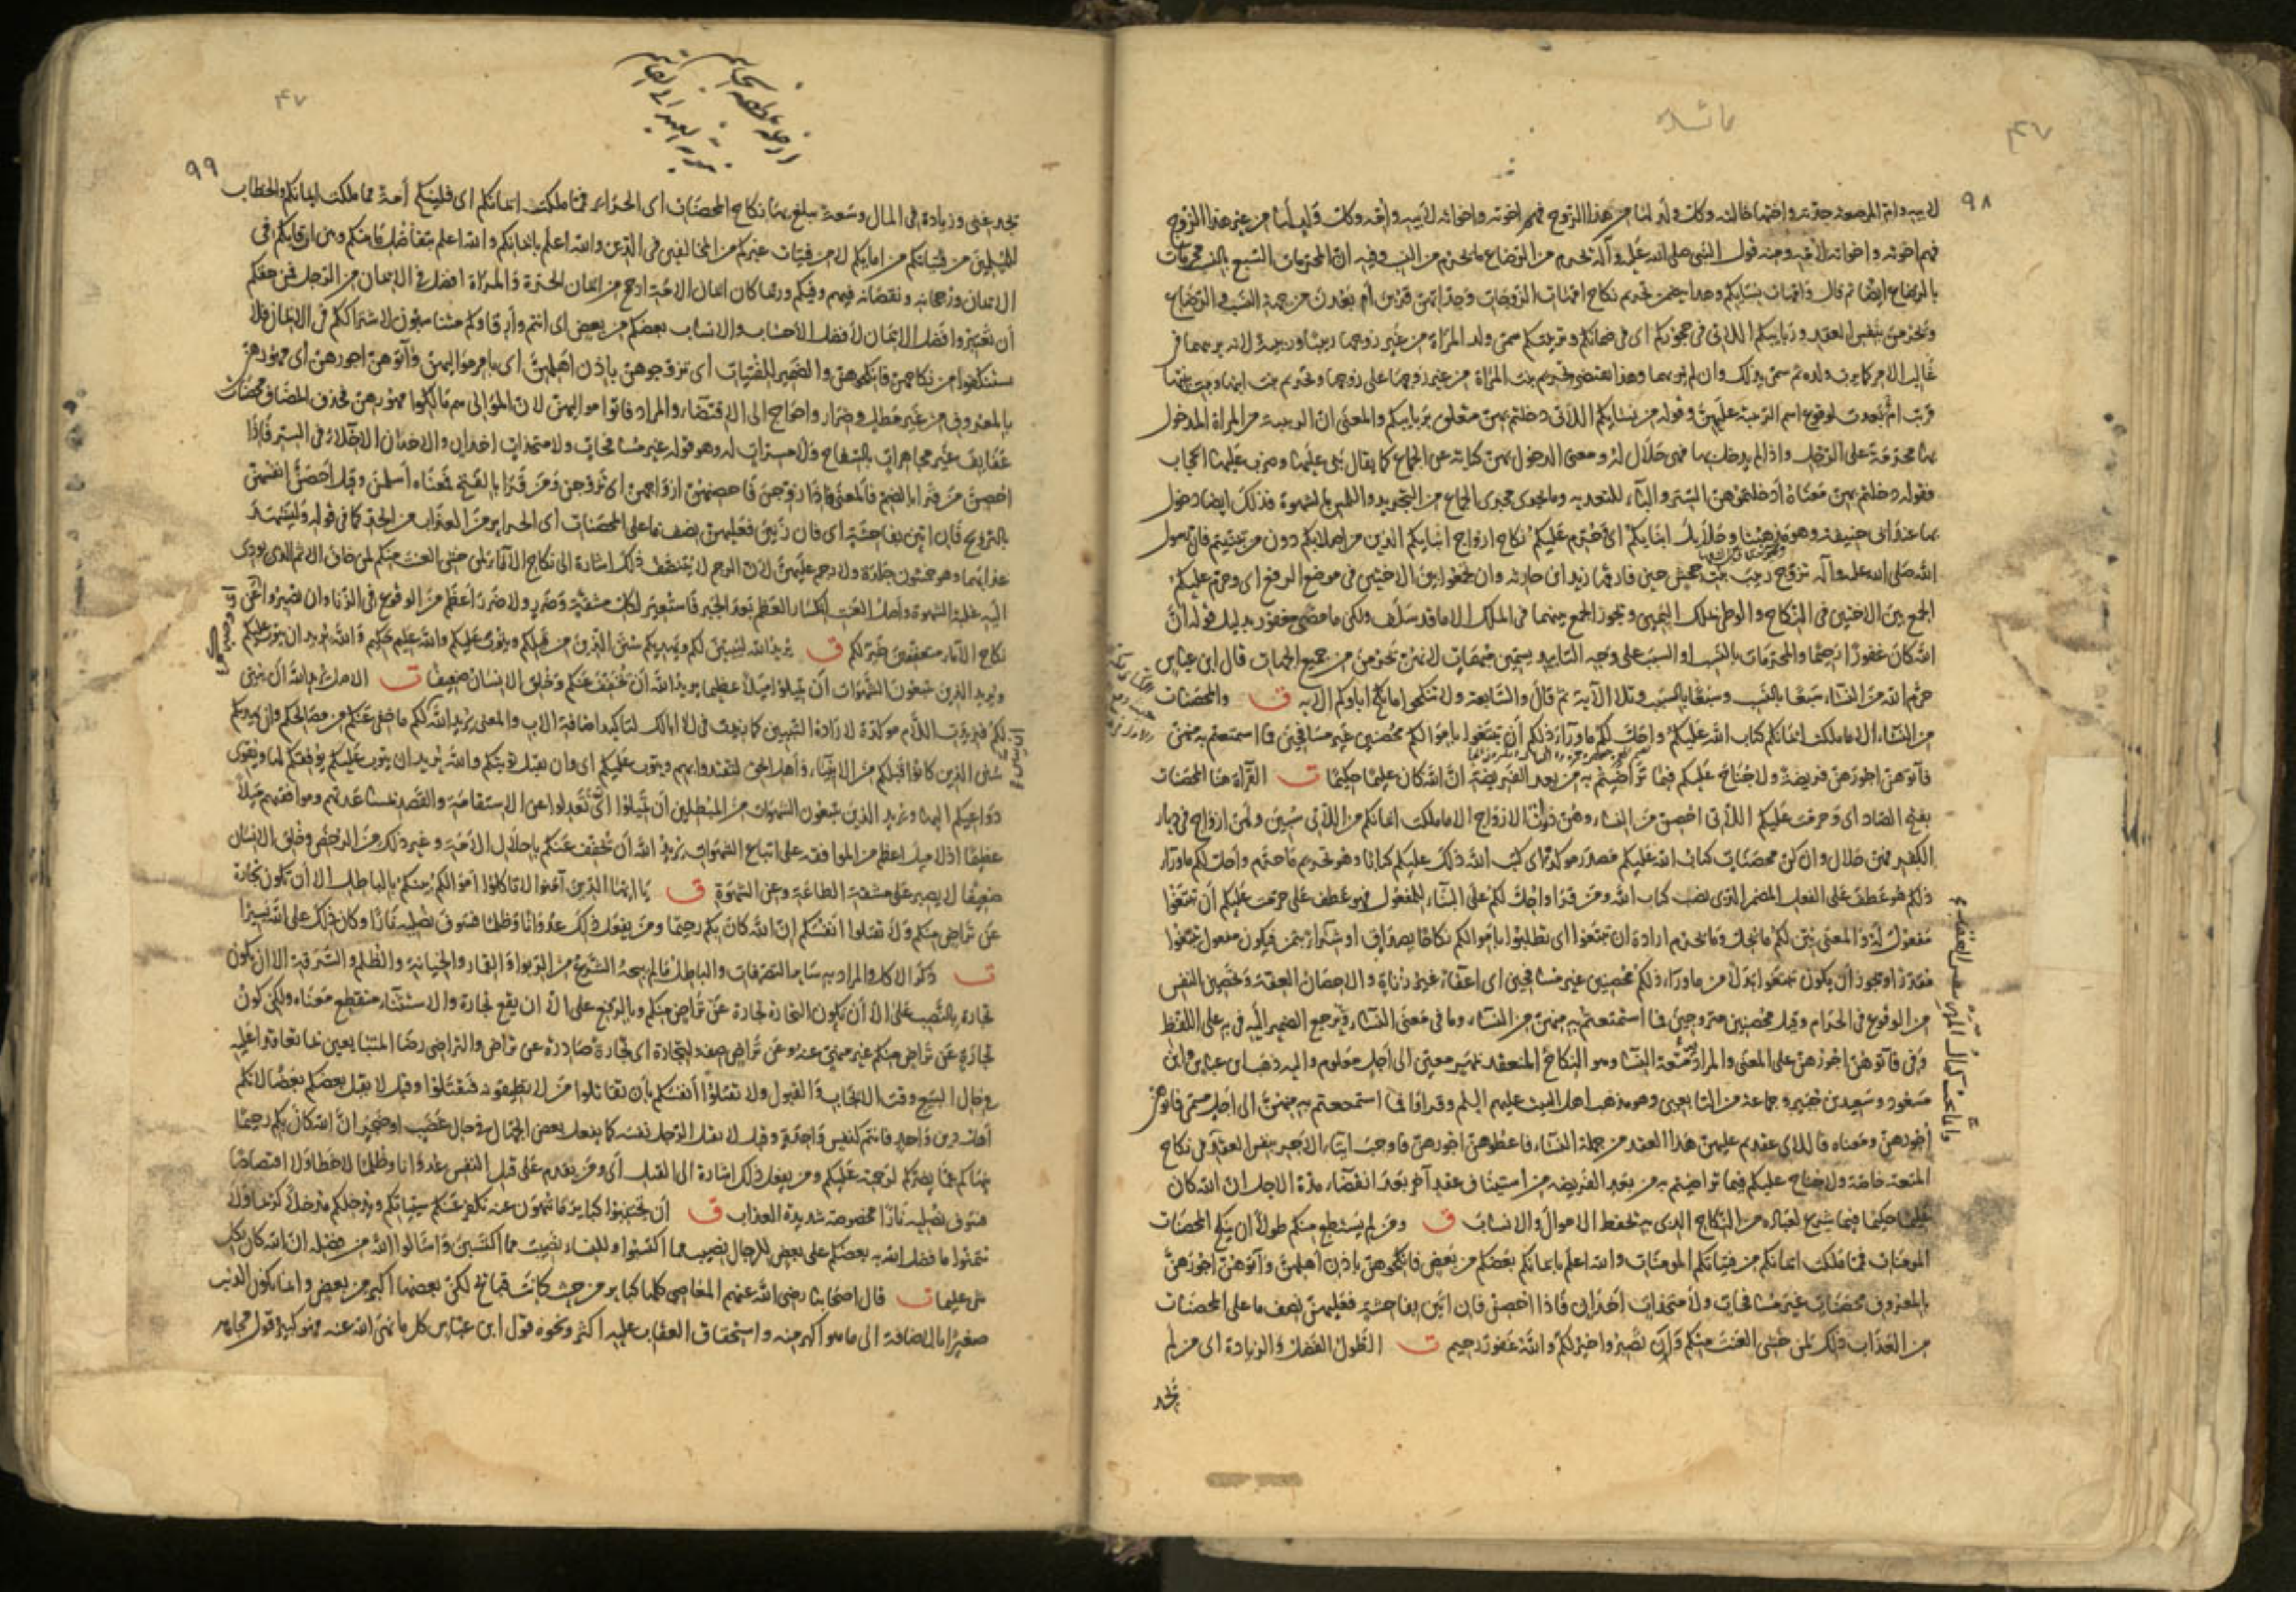 ٩٨
لابيه وام المرضعة جدته واختها خالته وكل ولد لها من هذا الزوج فهم اخوته واخواته لابيه وامه وكل ولد لها من غير هذا الزوج
فهم اخوته واخواته لامه ومنه قول النبى صلى الله عليه وآله يحرم من الرضاع ما يحرم من النسب وفيه ان المحرمات السبع بالنسب محرمات
بالرضاع ايضا ثم قال وامهات نسائكم وهذا يتضمن تحريم نكاح امهات الزوجات وجداتهن قربن أم بعدن من جهة النسب والرضاع
ويحرمن بنفس العقد وربايبكم اللاتى فى حجوركم اى فى ضمانكم وتربيتكم سمى ولد المراة من غير زوجها ربيبا وربيبة لانه يربيهما فى
غالب الامر كما يرب ولده ثم سمى بذلك وان لم يربهما وهذا يقتضى تحريم بنت المراة من غير زوجها على زوجها وتحريم بنت ابنها وبنت بنتها
قربت ام بعدت لوقوع اسم الربيبة عليهن وقوله من نسايكم اللاتى دخلتم بهن متعلق بربايبكم والمعنى ان الربيبة من المراة المدخول
بها محرمة على الرجل واذا لم يدخل بها فهى حلال له ومعنى الدخول بهن كناية عن الجماع كما يقال بنى عليها وضرب عليها الحجاب
فقوله دخلتم بهن معناه أدخلتموهن الستر والباء للتعدية وما يجرى مجرى الجماع من التجريد واللمس بالشهوة فذلك ايضا دخول
بها عند ابى حنيفة وهو مذهبنا وحلايل ابنايكم اى حرم عليكم نكاح ازواج ابنايكم الذين من اصلابكم دون من تبنيتم فان رسول
الله صلى الله عليه وآله تزوج زينب بنت جحش حين فارقها زيد ابن حارثة وان تجمعوا بين الاختين فى موضع الرفع اى وحرم عليكم
الجمع بين الاختين فى النكاح والوطى بملك اليمين ويجوز الجمع بينهما فى الملك الا ما قد سلف ولكن ما مضى مغفور بدليل قوله ان
الله كان غفورا رحيما والمحرمات بالنسب او السبب على وجه التأبيد يسمين مبهمات لانهن تحرمن من جميع الجهات قال ابن عباس
حرم الله من النساء سبعا بالنسب وسبعا بالسبب وتلا الآية ثم قال والسابعة ولا تنكحوا ما نكح اباوكم الاية ق والمحصنات
من النساء الا ما ملكت ايمانكم كتاب الله عليكم واحل لكم ما وراء ذلكم أن تبتغوا باموالكم محصنين غير مسافحين فما استمتعتم به منهن
فآتوهن اجورهن فريضة ولا جناح عليكم فيما تراضيتم به من بعد الفريضة ان الله كان عليما حكيما ت القرآة هنا المحصنات
بفتح الصاد اى وحرمت عليكم اللاتى احصن من النساء وهن ذوات الازواج الا ما ملكت ايمانكم من اللاتى سبين ولهن ازواج فى ديار
الكفر فهن حلال وان كن محصنات كتاب الله عليكم مصدر موكد اى كتب الله ذلك عليكم كتابا وهو تحريم ما حرم واحل لكم ما وراء
ذلكم هو عطف على الفعل المضمر الذى نصب كتاب الله ومن قرا واحل لكم على البناء للمفعول فهو عطف على حرمت عليكم أن تبتغوا
مفعول له والمعنى بين لكم ما يحل وما يحرم ارادة ان تبتغوا اى تطلبوا باموالكم نكاحا بصداق او شراء بثمن فيكون مفعول تبتغوا
مقدرا ويجوز أن يكون تبتغوا بدلا من ما وراء ذلكم محصنين غير مسافحين اى اعفاء غير زناة والاحصان العفة وتحصين النفس
من الوقوع فى الحرام وقيل محصنين متزوجين فما استمتعتم به منهن من النساء وما فى معنى النساء ويرجع الضمير اليه فى به على اللفظ
وفى فآتوهن اجورهن على المعنى والمراد به متعة النساء وهو النكاح المنعقد بمهر معين الى اجل معلوم واليه ذهب ابن عباس وابن
مسعود وسعيد بن جبير وجماعة من التابعين وهو مذهب اهل البيت عليهم السلم وقد قراوا فما استمتعتم به منهن الى اجل مسمى فاتوهن
اجورهن ومعناه فاللاتى عقدتم عليهن هذا العقد من جملة النساء فاعطوهن اجورهن فاوجب ايتاء الاجر بنفس العقد فى نكاح
المتعة خاصة ولا جناح عليكم فيما تراضيتم به من بعد الفريضة من استيناف عقد آخر بعد انقضاء مدة الاجل ان الله كان
عليما حكيما فيما شرع لعباده من النكاح الذى به تحفظ الاموال والانساب ق ومن لم يستطع منكم طولا ان ينكح المحصنات
المومنات فمما ملكت ايمانكم من فتياتكم المومنات والله اعلم بايمانكم بعضكم من بعض فانكحوهن باذن أهلهن وآتوهن اجورهن
بالمعروف محصنات غير مسافحات ولا متخذات اخدان فاذا احصن فان اتين بفاحشة فعليهن نصف ما على المحصنات
من العذاب ذلك لمن خشى العنت منكم وان تصبروا خير لكم والله غفور رحيم ت الطول الفضل والزيادة اى من لم
يجد
٩٩
يجد غنى وزيادة فى المال وسعة يبلغ بها نكاح المحصنات اى الحراير فمما ملكت ايمانكم اى فلينكح أمة مما ملكت ايمانكم والخطاب
للمسلمين من فتياتكم من امايكم لا من فتيات غيركم من المخالفين فى الدين والله اعلم بايمانكم والله اعلم بتفاضل ما بينكم وبين ارقايكم فى
الايمان ورجحانه ونقصانه فيهم وفيكم وربما كان ايمان الامة ارجح من ايمان الحرة والمراة افضل فى الايمان من الرجل فمن حقكم
أن تعتبروا فضل الايمان لا فضل الأحساب والانساب بعضكم من بعض اى انتم وارقاوكم متناسبون لاشتراككم فى الايمان فلا
تستنكفوا من نكاحهن فانكحوهن والضمير للفتيات اى تزوجوهن باذن اهلهن اى بامر مواليهن وآتوهن اجورهن اى مهورهن
بالمعروف من غير مطل وضرار واحواج الى الاقتضاء والمراد فاتوا مواليهن لان الموالى هم مالكوا مهورهن فحذف المضاف محصنات
عفايف غير مجاهرات بالسفاح ولا مسرات له وهو قوله غير مسافحات ولا متخذات اخدان والاخدان الاخلاء فى السر فاذا
احصن من قرا بالضم فالمعنى فاذا زوجن فاحصنهن ازواجهن اى تزوجن ومن قرا بالفتح فمعناه أسلمن وقيل احصن انفسهن
بالتزويج فان اتين بفاحشة اى فان زنين فعليهن نصف ما على المحصنات اى الحراير من العذاب من الحد كما فى قوله وليشهد
عذابهما وهو خمسون جلدة ولا رجم عليهن لان الرجم لا يتنصف ذلك اشارة الى نكاح الآماء لمن خشى العنت منكم لمن خاف الاثم الذى يودى
اليه غلبة الشهوة وأصل العنت انكسار العظم بعد الجبر فاستعير لكل مشقة وضرر ولا ضرر اعظم من الوقوع فى الزنا وان تصبروا عن
نكاح الآماء متعففين خير لكم ق يريد الله ليبين لكم ويهديكم سنن الذين من قبلكم ويتوب عليكم والله عليم حكيم والله يريد ان يتوب عليكم
ويريد الذين يتبعون الشهوات أن تميلوا ميلا عظيما يريد الله أن يخفف عنكم وخلق الانسان ضعيفا ت الاصل يريد الله أن يبين
لكم فزيدت اللام موكدة لارادة التبيين كما زيدت فى لا ابا لك لتاكيد اضافة الاب والمعنى يريد الله لكم ما خفى عنكم من مصالحكم وان يهديكم
سنن الذين كانوا قبلكم من الانبياء وأهل الحق لتقتدوا بهم ويتوب عليكم اى وان يقبل توبتكم والله يريد ان يتوب عليكم يوفقكم لها ويقوى
دواعيكم اليها ويريد الذين يتبعون الشهوات من المبطلين أن تميلوا اى تعدلوا عن الاستقامة والقصد بمساعدتهم وموافقتهم ميلا
عظيما اذ لا ميل اعظم من الموافقة على اتباع الشهوات يريد الله أن يخفف عنكم باحلال الامة وغير ذلك من الرخص وخلق الانسان
ضعيفا لا يصبر على مشقة الطاعة وعن الشهوة ق يا ايها الذين آمنوا لا تاكلوا أموالكم بينكم بالباطل الا أن تكون تجارة
عن تراض منكم ولا تقتلوا انفسكم ان الله كان بكم رحيما ومن يفعل ذلك عدوانا وظلما فسوف نصليه نارا وكان ذلك على الله يسيرا
ت ذكر الاكل والمراد به ساير التصرفات والباطل ما لم يبحه الشرع من الربوا والقمار والخيانة والظلم والسرقة الا ان تكون
تجارة بالنصب على الا أن تكون التجارة تجارة عن تراض منكم وبالرفع على الا ان يقع تجارة والاستثناء منقطع معناه ولكن كون
تجارة عن تراض منكم غير منهى عنه وعن تراض صفة لتجارة اى تجارة صادرة عن تراض والتراضى رضا المتبايعين بما تعاقدا عليه
فى حال البيع وقت الايجاب والقبول ولا تقتلوا أنفسكم بأن تقاتلوا من لا تطيقونه فتقتلوا وقيل لا يقتل بعضكم بعضا لانكم
أهل دين واحد فانتم كنفس واحدة وقيل لا يقتل الرجل نفسه كما يفعله بعض الجهال فى حال غضب او ضجر ان الله كان بكم رحيما
نهاكم عما يضركم لرحمته عليكم ومن يفعل ذلك اشارة الى القتل أى ومن يقدم على قتل النفس عدوانا وظلما لا خطأ ولا اقتصاصا
فسوف نصليه نارا مخصوصة شديدة العذاب ق أن تجتنبوا كباير ما تنهون عنه نكفر عنكم سيئاتكم وندخلكم مدخلا كريما ولا
تتمنوا ما فضل الله به بعضكم على بعض للرجال نصيب مما اكتسبوا وللنساء نصيب مما اكتسبن واسألوا الله من فضله ان الله كان بكل
شئ عليما ت قال اصحابنا رضى الله عنهم المعاصى كلها كباير من حيث كانت قبايح لكن بعضها أكبر من بعض وانما يكون الذنب
صغيرا بالاضافة الى ما هو اكبر منه واستحقاق العقاب عليه اكثر ونحوه قول ابن عباس كل ما نهى الله عنه فهو كبيرة وقول مجاهد